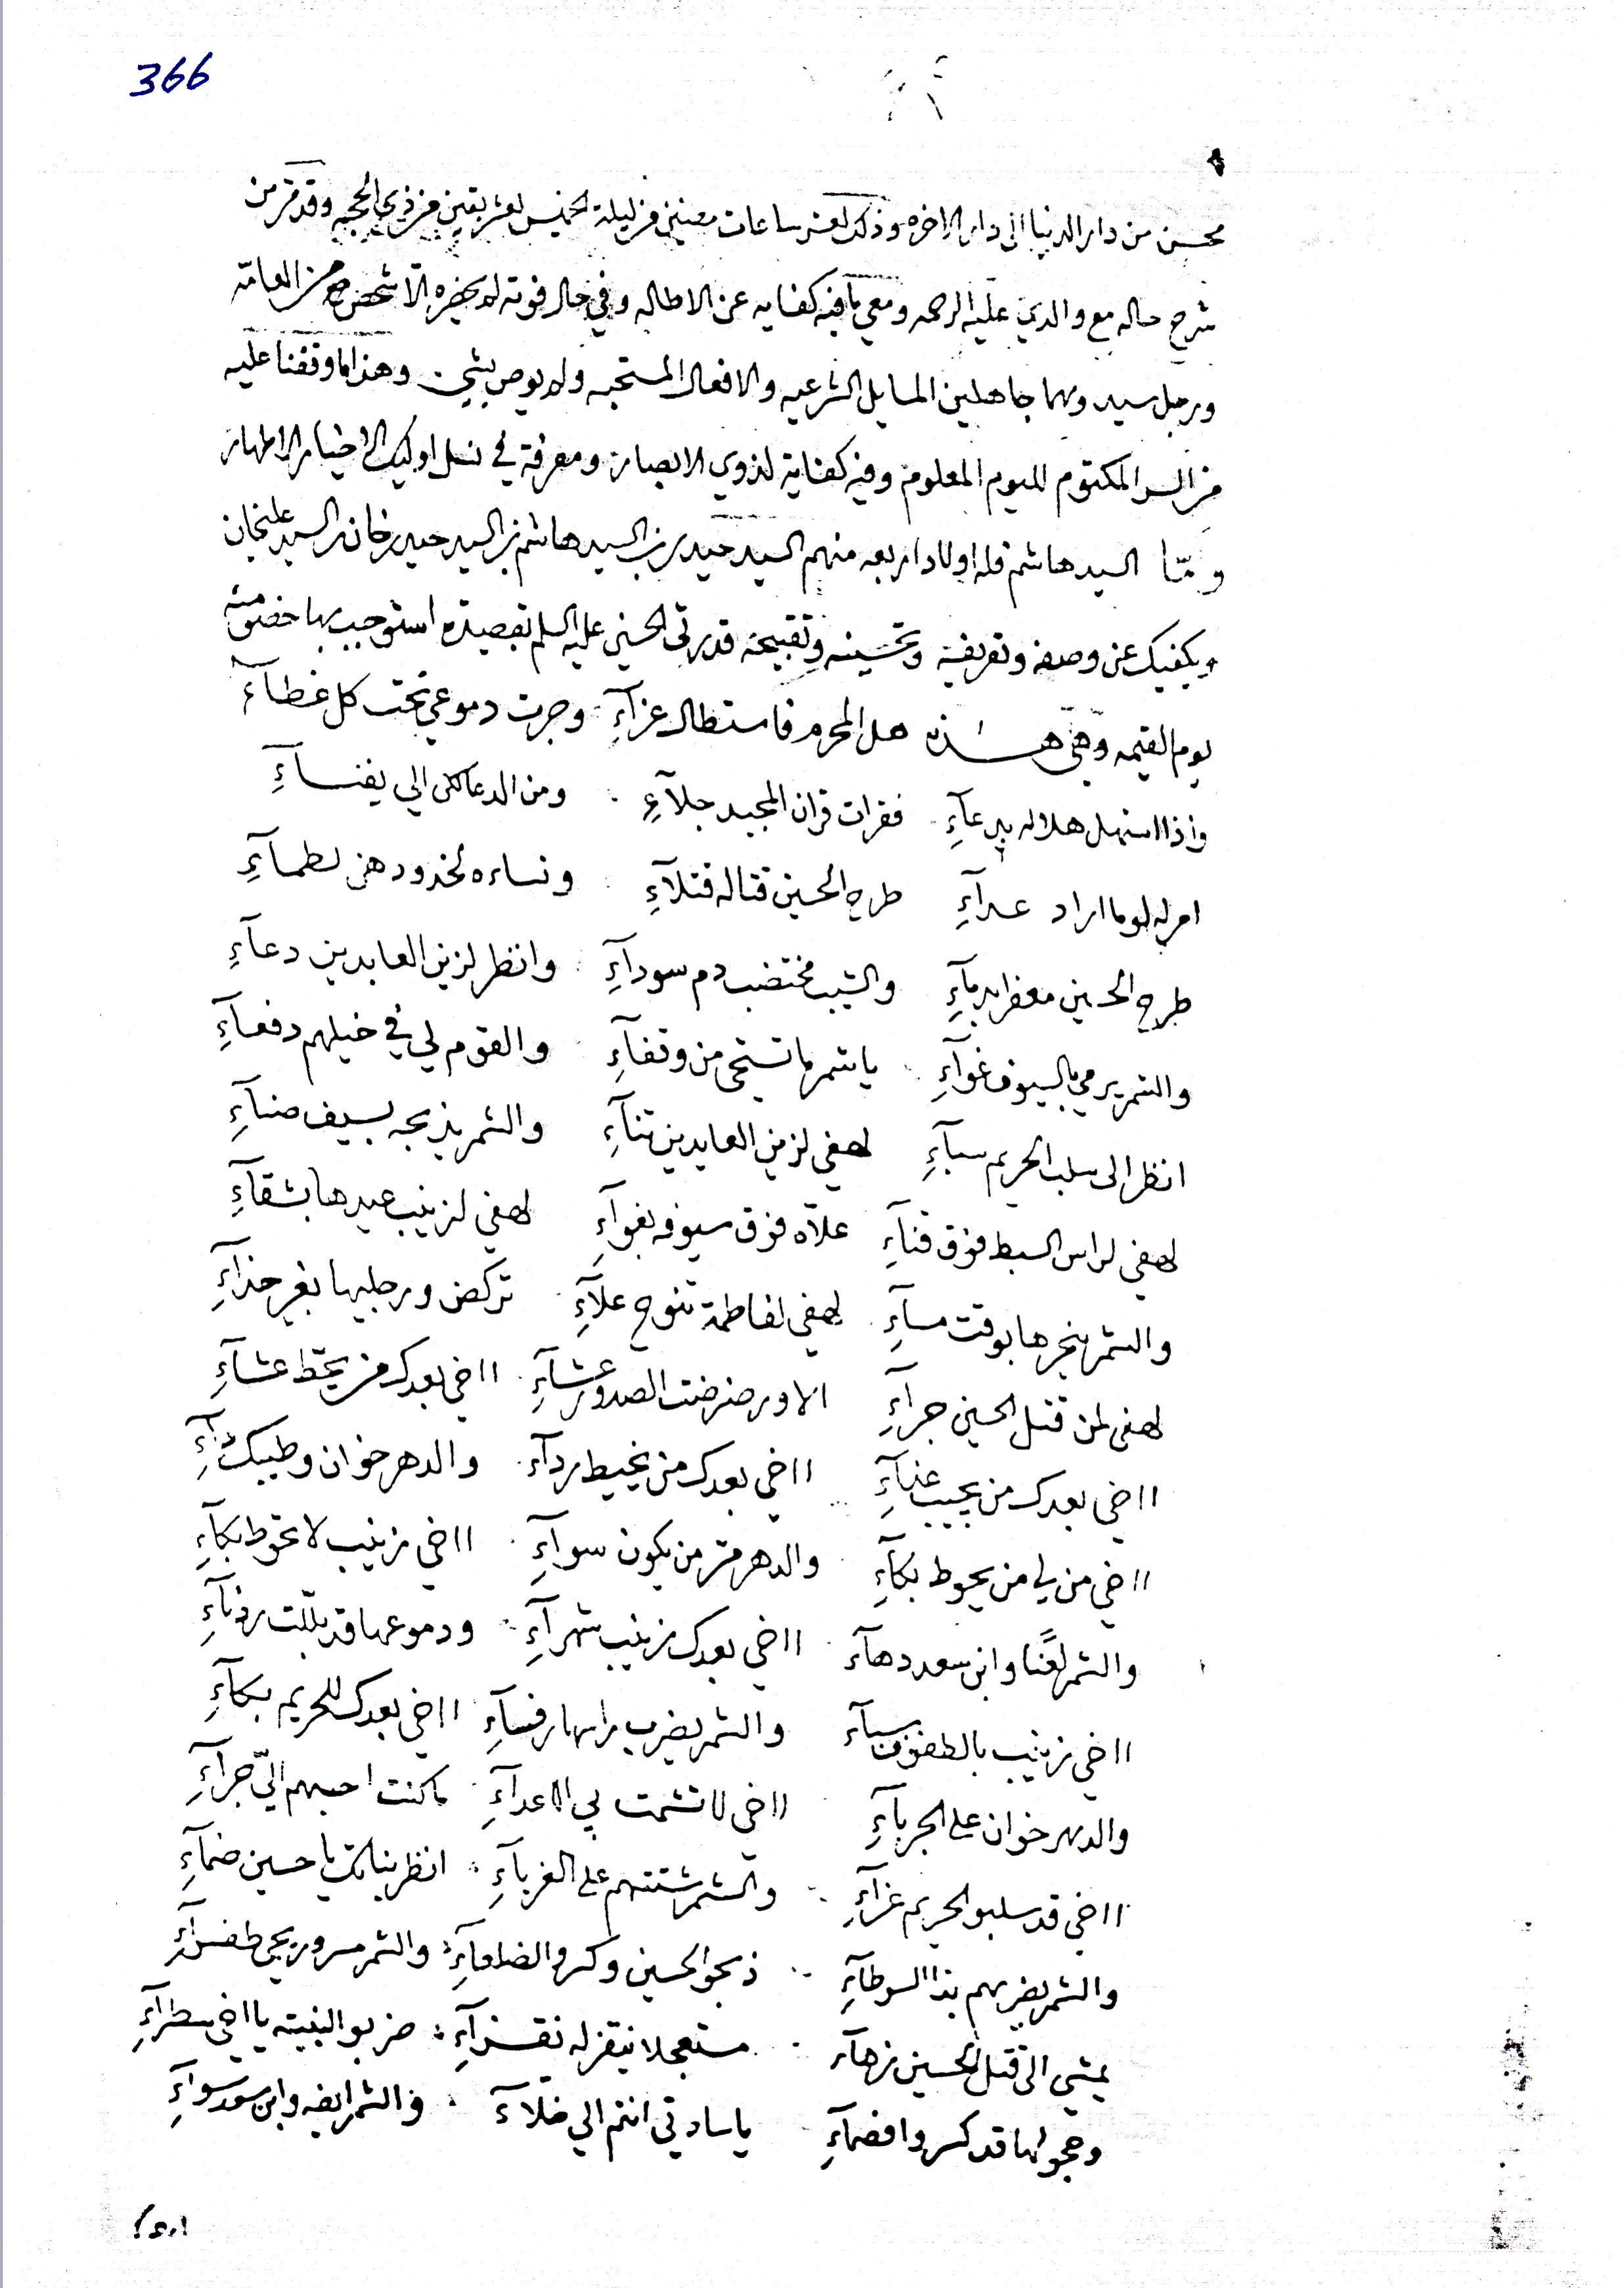 366
محسن من دار الدنيا الى دار الاخره وذلك لعشر ساعات مضين من ليلة الخميس لعشر بقين من ذي الحجه وقد مر من
شرح حاله مع والدي عليه الرحمه ومعي ما فيه كفايه عن الاطاله وفي حال فوته لم يحضره الا شخص من العامه
ورجل سيد وهما جاهلين المسايل الشرعيه والافعال المستحبه ولم يوص بشيء وهذا ما وقفنا عليه
من السر المكتوم لليوم المعلوم وفيه كفاية لذوي الابصار ومعرفة في نسل اوليك الاخيار الاطهار
واما السيد هاشم فله اولاد اربعه منهم السيد حيدر بن السيد هاشم بن السيد حيدر خان بن السيد عليخان
ويكفيك عن وصفه وتعريفه وتحسينه وتقبيحه قد رثى الحسين عليه السلم بقصيده استوجب بها خصومته
يوم القيمه وهي هذه هل المحرم فاستطال عزآءِ وجرت دموعي تحت كل غطآءَ
واذا استهل هلاله بدعآءِ فقرات قران المجيد جلآءِ ومن الدعا كل الي يفنسآءِ
امر له لو ما اراد عدآءِ طرح الحسين قتاله قتلآءِ ونساءه لخدودهن لطمآءِ
طرح الحسين معفرا بدمآءِ والشيب مختضب دم سودآءِ وانظر لزين العابدين دعآءِ
والشمر يرمي بالسيوف غوآءِ يا شمر ما تستحي من وقفآءِ والقوم لي في خيلهم دفعآءِ
انظر الى سلب الحريم سبآءِ لهفي لزين العابدين تنآءِ والشمر يذبحه بسيف ضنآءِ
لهفي لراس السبط فوق قنآءِ علاه فوق سيوفه بغوآءِ لهفي لزينب عيدها بشقآءِ
والشمر ينحرها بوقت مسآءِ لهفي لفاطمة تنوح علآءِ تركض ورجليها بغير حذآءِ
لهفي لمن قتل الحسين جرآءِ الا ورضرضت الصدور عشآءِ ااخي بعدك من يحط عشآءِ
ااخي بعدك من يجيب عنآءِ ااخي بعدك من يخيط ردآء والدهر خوان وطيبك
ااخي من لي من يحوط بكآءِ والدهر مر من يكون سوآءِ ااخي زينب لا تحوط بكآءِ
والشمر لعنًا وابن سعد دهآء ااخي بعدك زينب شهرآءِ ودموعها قد بللت ردنآءِ
ااخي زينب بالطفوف سبآء والشمر يضرب راسها رفسآءِ ااخي بعدك للحريم بكآءِ
والدهر خوان على الجربآءِ ااخي لا تشمت بي الاعدآءِ ما كنت احسبهم اليّ جرآءِ
ااخي قد سلبو الحريم عزآءِ والشمر شتتهم على الغربآءِ انظر بناتك يا حسين ضمآءِ
والشمر يضربهم بذا السوطآءِ ذبحو الحسين وكسرو الضلعآءِ والشمر مسرور يجي طفسآءِ
يمشي الى قتل الحسين زهآء مستعجلا ينقز له نقزآءِ ضربو البنيته يا اخي سطرآءِ
وحجولها قد كسروا فضمآءِ يا سادتي انتم الي خلآءَ والشمر ايضه وابن سعد سوآءِ